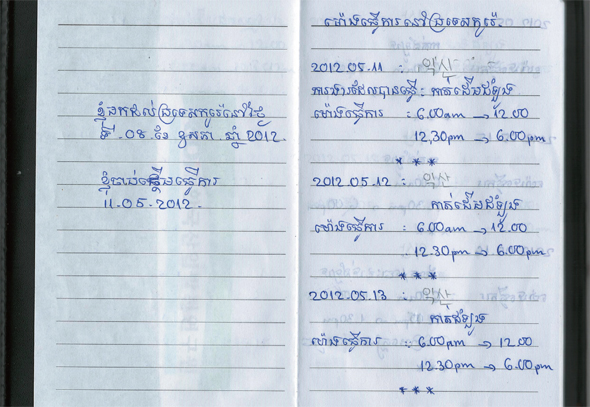 ខ្ញុំមកដល់ប្រទេសកូរ៉េនៅថ្ងៃ
ទី. 08. ខែ ឧសភា. ឆ្នាំ 2012.
ខ្ញុំចាប់ផ្តើមធ្វើការ
11.05.2012.
ម៉ោងធ្វើការនៅប្រទេសកូរ៉េ.
2012.05.11 : 익산
ការងារដែលបានធ្វើ: កាត់ដើមដំឡូង
ម៉ោងធ្វើការ : 6.00am → 12.00
12,30pm → 6.00pm
***
2012.05.12 : 익산
កាត់ដើមដំឡូង
ម៉ោងធ្វើការ : 6.00am → 12.00
12.30pm → 6.00pm
***
2012.05.13 : 익산
កាត់ដំឡូង
ម៉ោងធ្វើការ : 6.00pm → 12.00
12.30pm → 6.00pm
***